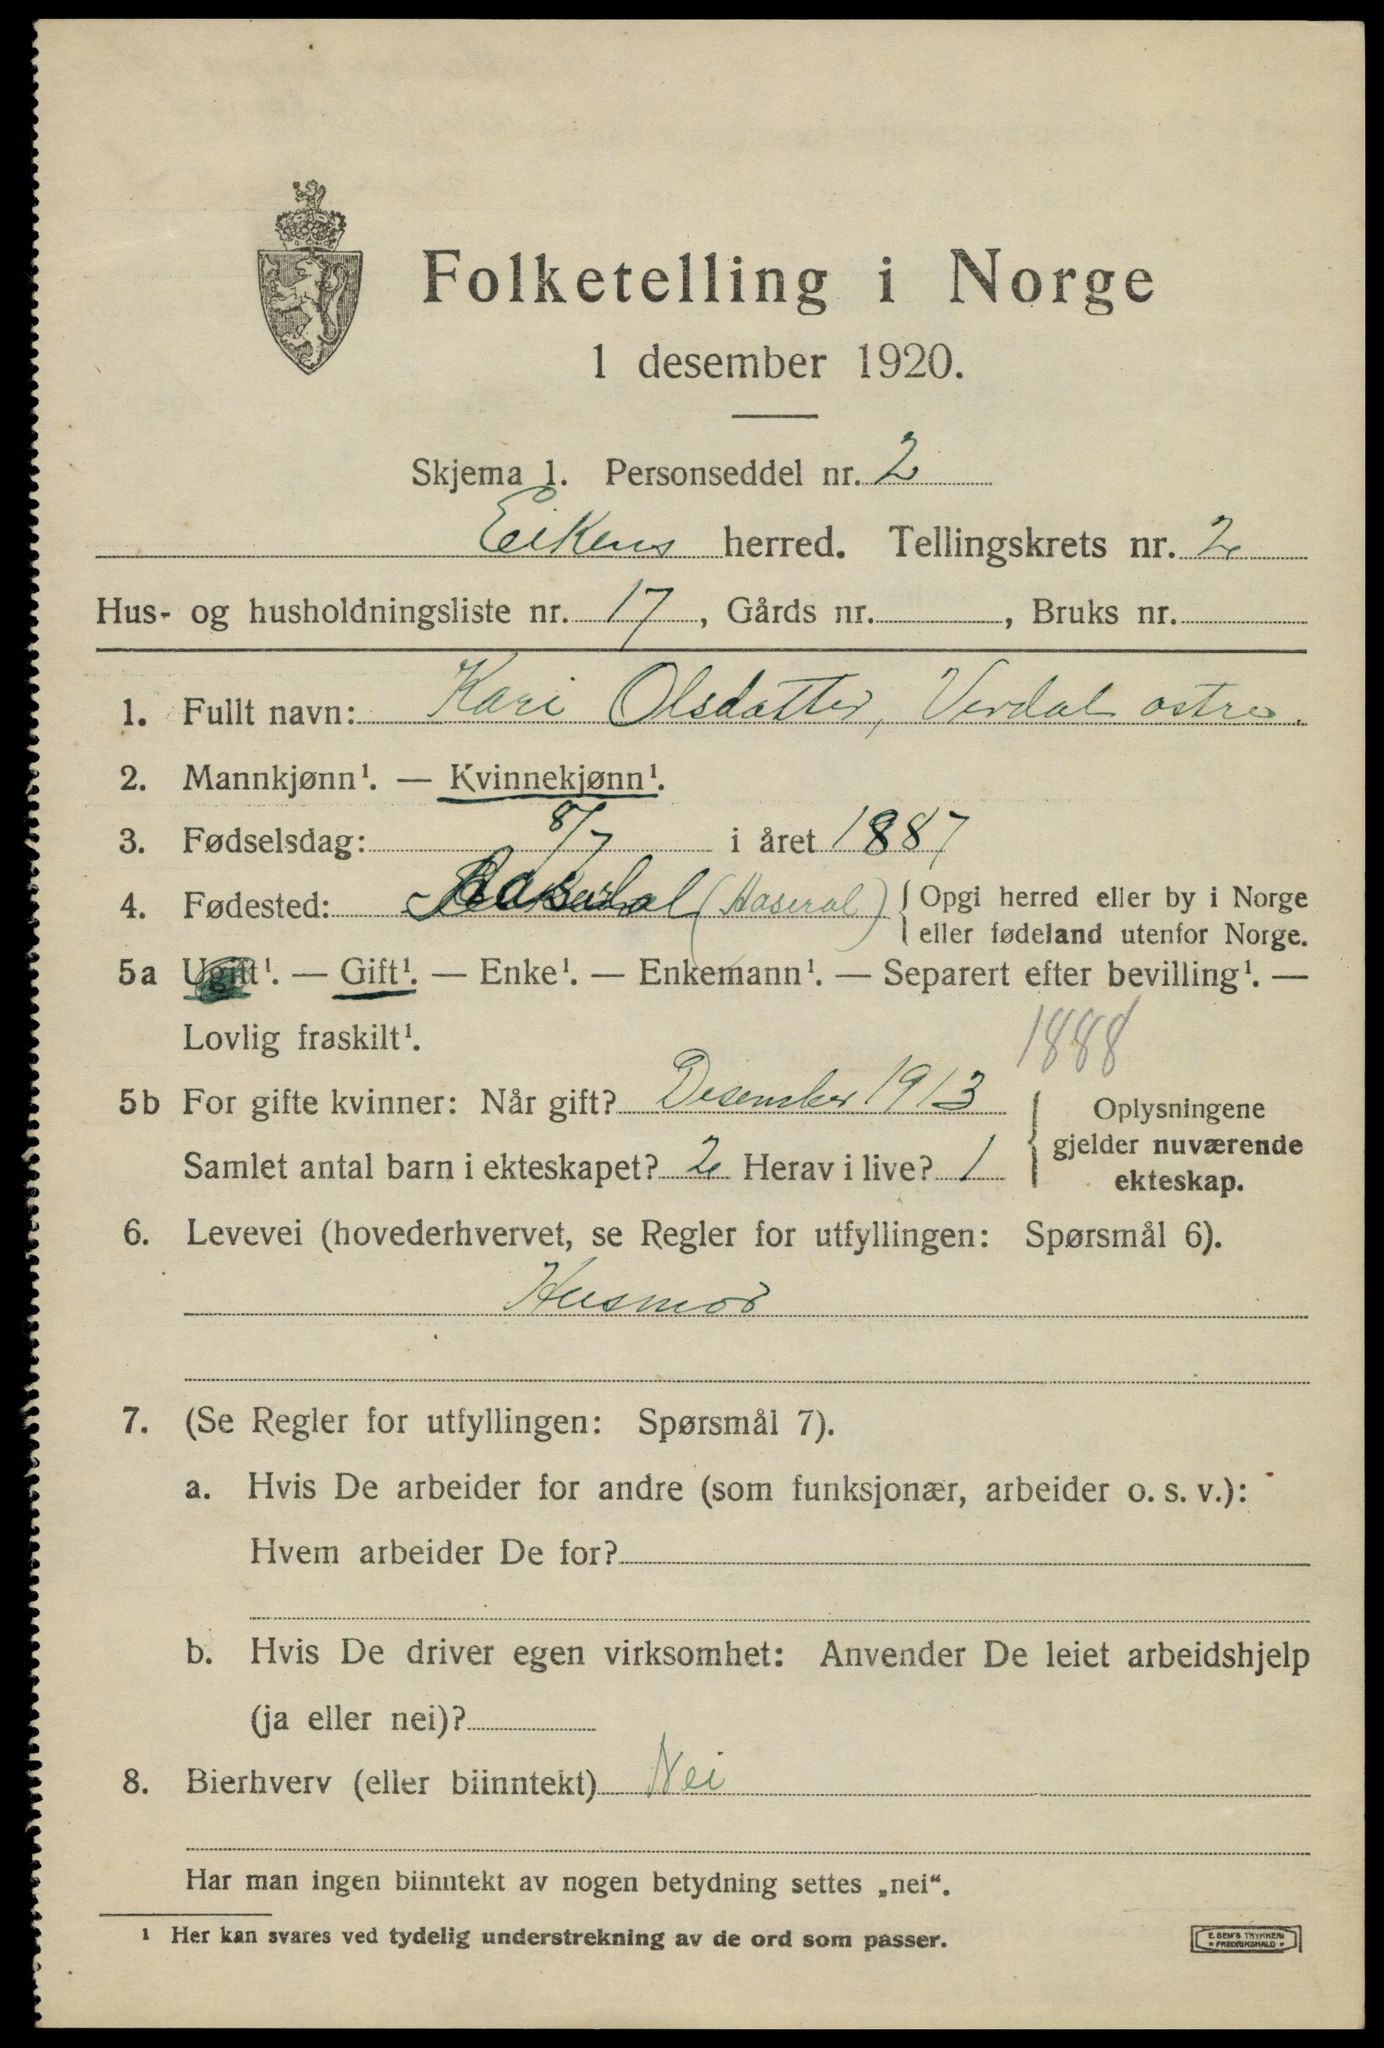 Folketelling i Norge
1 desember 1920.
Skjema 1. Personseddel nr. 2
Eikens herred. Tellingskrets nr. 2
Hus- og husholdningsliste nr. 17, Gårds nr. , Bruks nr.
1. Fullt navn: Kari Olsdatter, Verdal østre.
2. Mannkjønn¹. — Kvinnekjønn¹.
3. Fødselsdag: 8/7 i året 1887
4. Fødested: (Aaseral) { Opgi herred eller by i Norge
eller fødeland utenfor Norge.
5a Ugift¹. — Gift¹. — Enke¹. — Enkemann¹. — Separert efter bevilling¹. —
Lovlig fraskilt¹.
1888
5b For gifte kvinner: Når gift? Desember 1913 { Oplysningene
gjelder nuværende
ekteskap.
Samlet antal barn i ekteskapet? 2 Herav i live? 1
6. Levevei (hovederhvervet, se Regler for utfyllingen: Spørsmål 6).
Husmor
7. (Se Regler for utfyllingen: Spørsmål 7).
a. Hvis De arbeider for andre (som funksjonær, arbeider o. s. v.):
Hvem arbeider De for?
b. Hvis De driver egen virksomhet: Anvender De leiet arbeidshjelp
(ja eller nei)?
8. Bierhverv (eller biinntekt) Nei
Har man ingen biinntekt av nogen betydning settes „nei“.
¹ Her kan svares ved tydelig understrekning av de ord som passer.
E. SEM'S TRYKKERI
FREDRIKSHALD